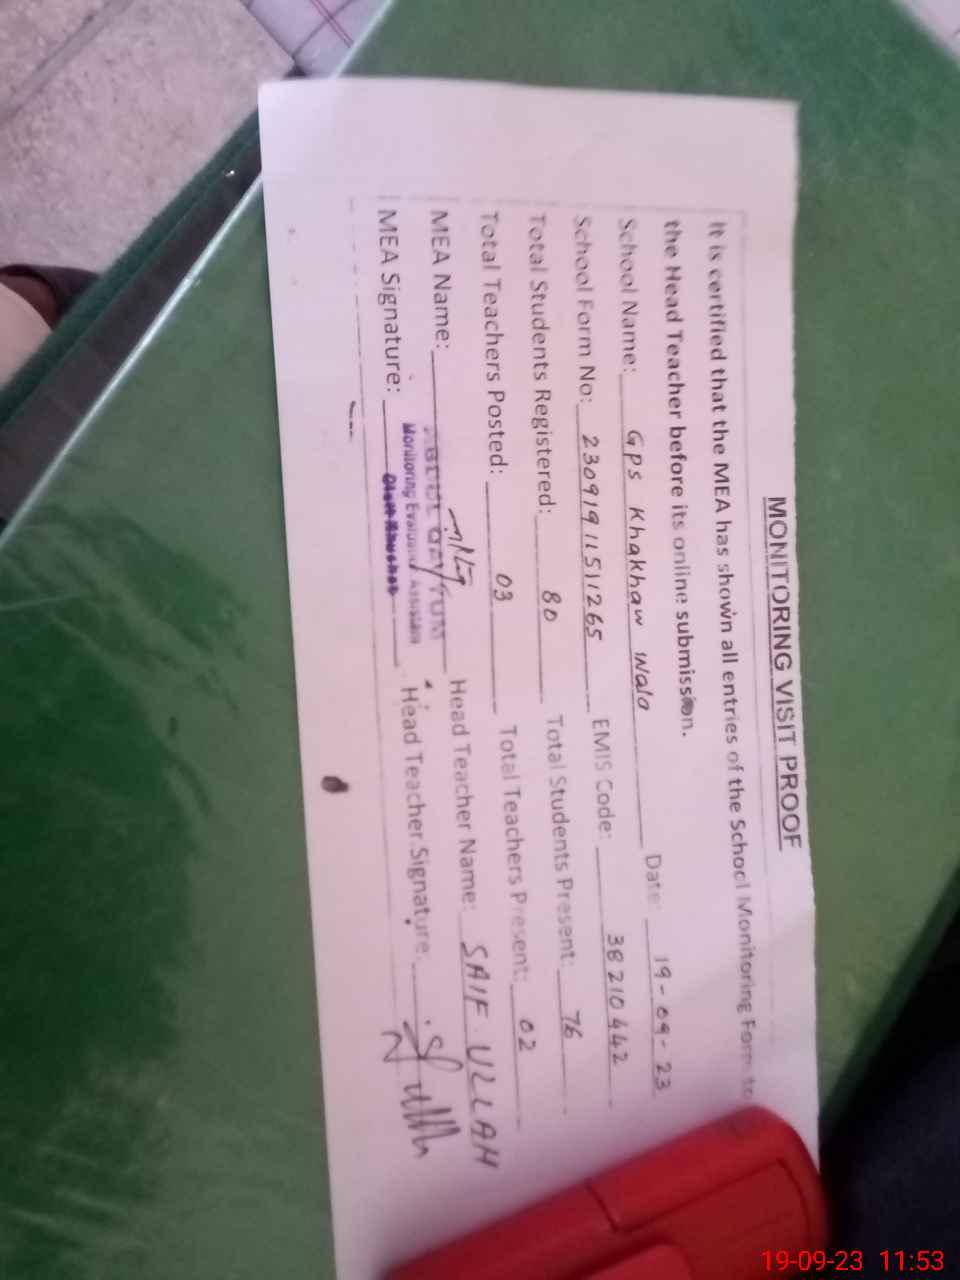 MONITORING VISIT PROOF
It is certified that the MEA has shown all entries of the School Monitoring Form to
the Head Teacher before its online submission.
School Name: Gps Khakhaw Wala Date: 19-09-23
School Form No: 23091911511265 EMIS Code: 38210442
Total Students Registered: 80 Total Students Present: 76
Total Teachers Posted: 03 Total Teachers Present: 02
MEA Name: ABDUL QAYYUM Head Teacher Name: SAIF ULLAH
Monitoring Evaluation Assistant
MEA Signature: Head Teacher Signature:
19-09-23 11:53